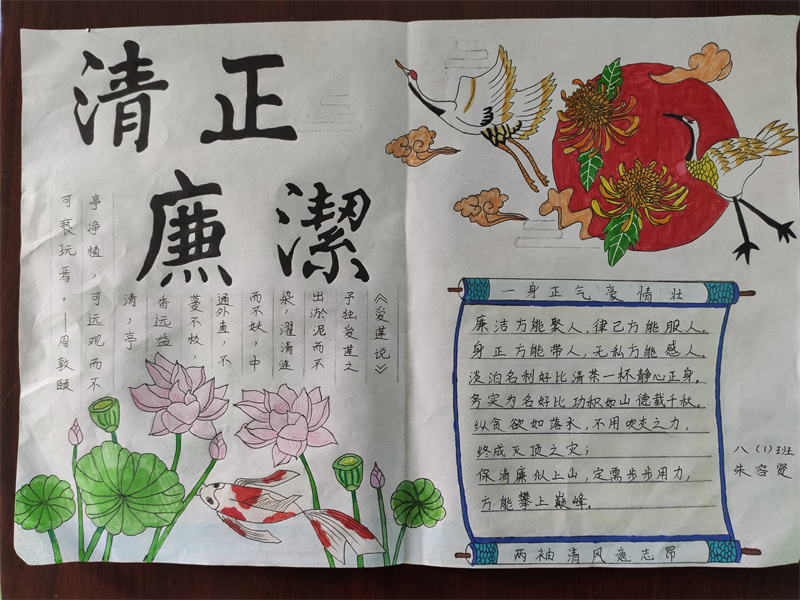 清正
廉潔
《爱莲说》
予独爱莲之
出淤泥而不
染，濯清涟
而不妖，中
通外直，不
蔓不枝，
香远益
清，亭
亭净植，可远观而不
可亵玩焉。——周敦颐
一身正气豪情壮
廉洁方能聚人，律己方能服人。
身正方能带人，无私方能感人。
淡泊名利好比清茶一杯静心正身，
务实为名好比功积如山德载千秋。
纵贪欲如落水，不用吹灰之力，
终成灭顶之灾；
保清廉似上山，定需步步用力，
方能攀上巅峰。
两袖清风意志昂
八(1)班
朱容贤